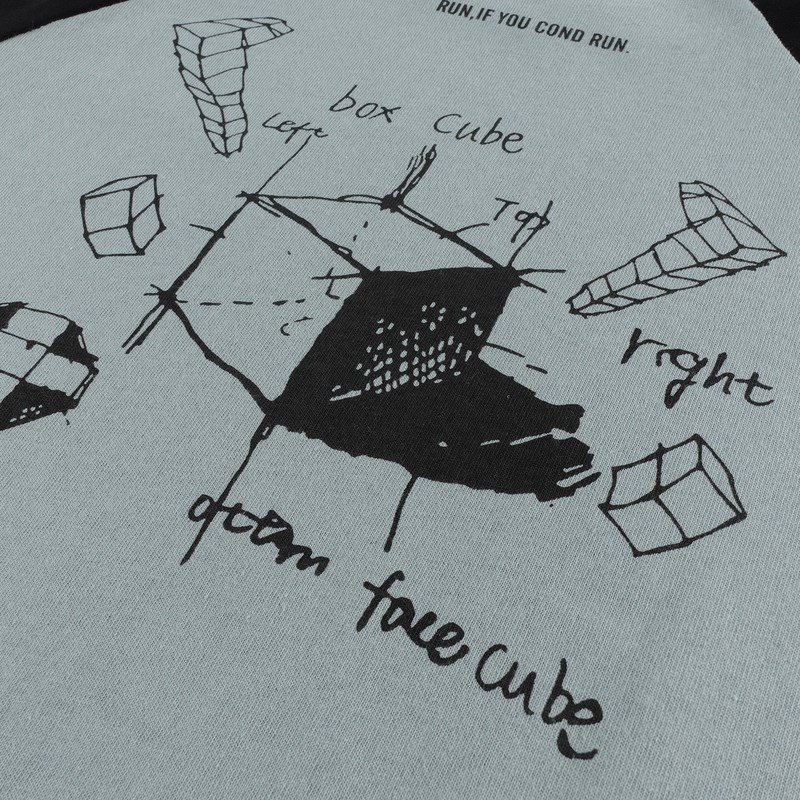 RUN,IF YOU COND RUN.
box cube
Left
Top
right
face cube